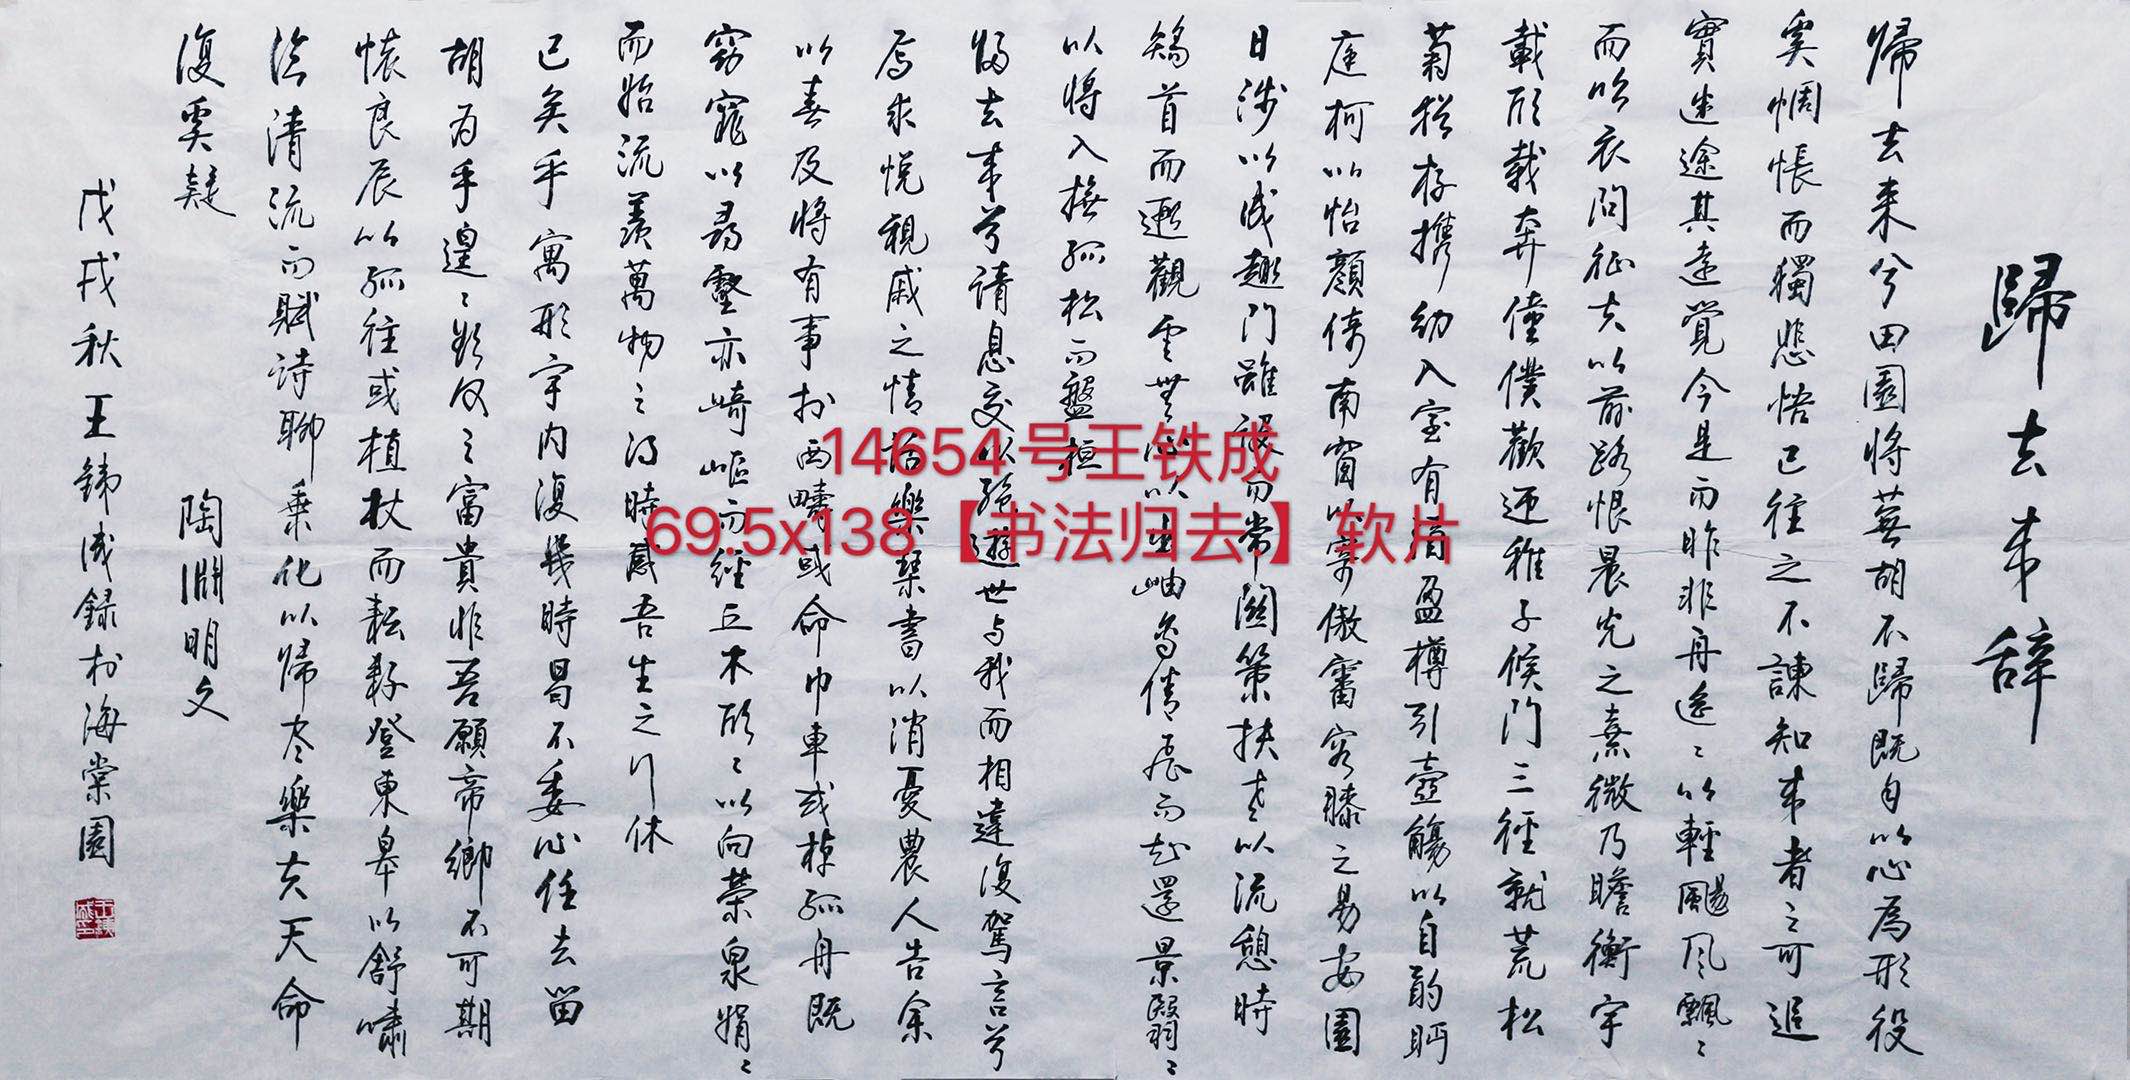 歸去來辞
歸去来兮田園将蕪胡不歸既自以心為形役
奚惆悵而獨悲悟已往之不諫知来者之可追
實迷途其未遠覺今是而昨非舟遥〻以輕颺风飄〻
而吹衣问征夫以前路恨晨光之熹微乃瞻衡宇
載欣載奔僮僕歡迎稚子候门三徑就荒松
菊猶存携幼入室有酒盈樽引壺觴以自酌眄
庭柯以怡顏倚南窗以寄傲審容膝之易安園
日涉以成趣门雖设而常關策扶老以流憩時
矯首而遐觀雲無心以出岫鳥倦飛而知還景翳〻
以将入撫孤松而盤桓
歸去来兮请息交以绝遊世与我而相違復駕言兮
焉求悦親戚之情话樂琴書以消憂農人告余
以春及将有事於西疇或命巾車或棹孤舟既
窈窕以尋壑亦崎嶇而經丘木欣〻以向荣泉涓〻
而始流羡萬物之得時感吾生之行休
已矣乎寓形宇内復幾時曷不委心任去留
胡为乎遑〻欲何之富貴非吾願帝鄉不可期
懷良辰以孤往或植杖而耘耔登東皋以舒嘯
臨清流而賦诗聊乘化以歸尽樂夫天命
復奚疑 陶淵明文
戊戌秋王鐵成録於海棠園
14654号王铁成
69.5x138【书法归去】软片